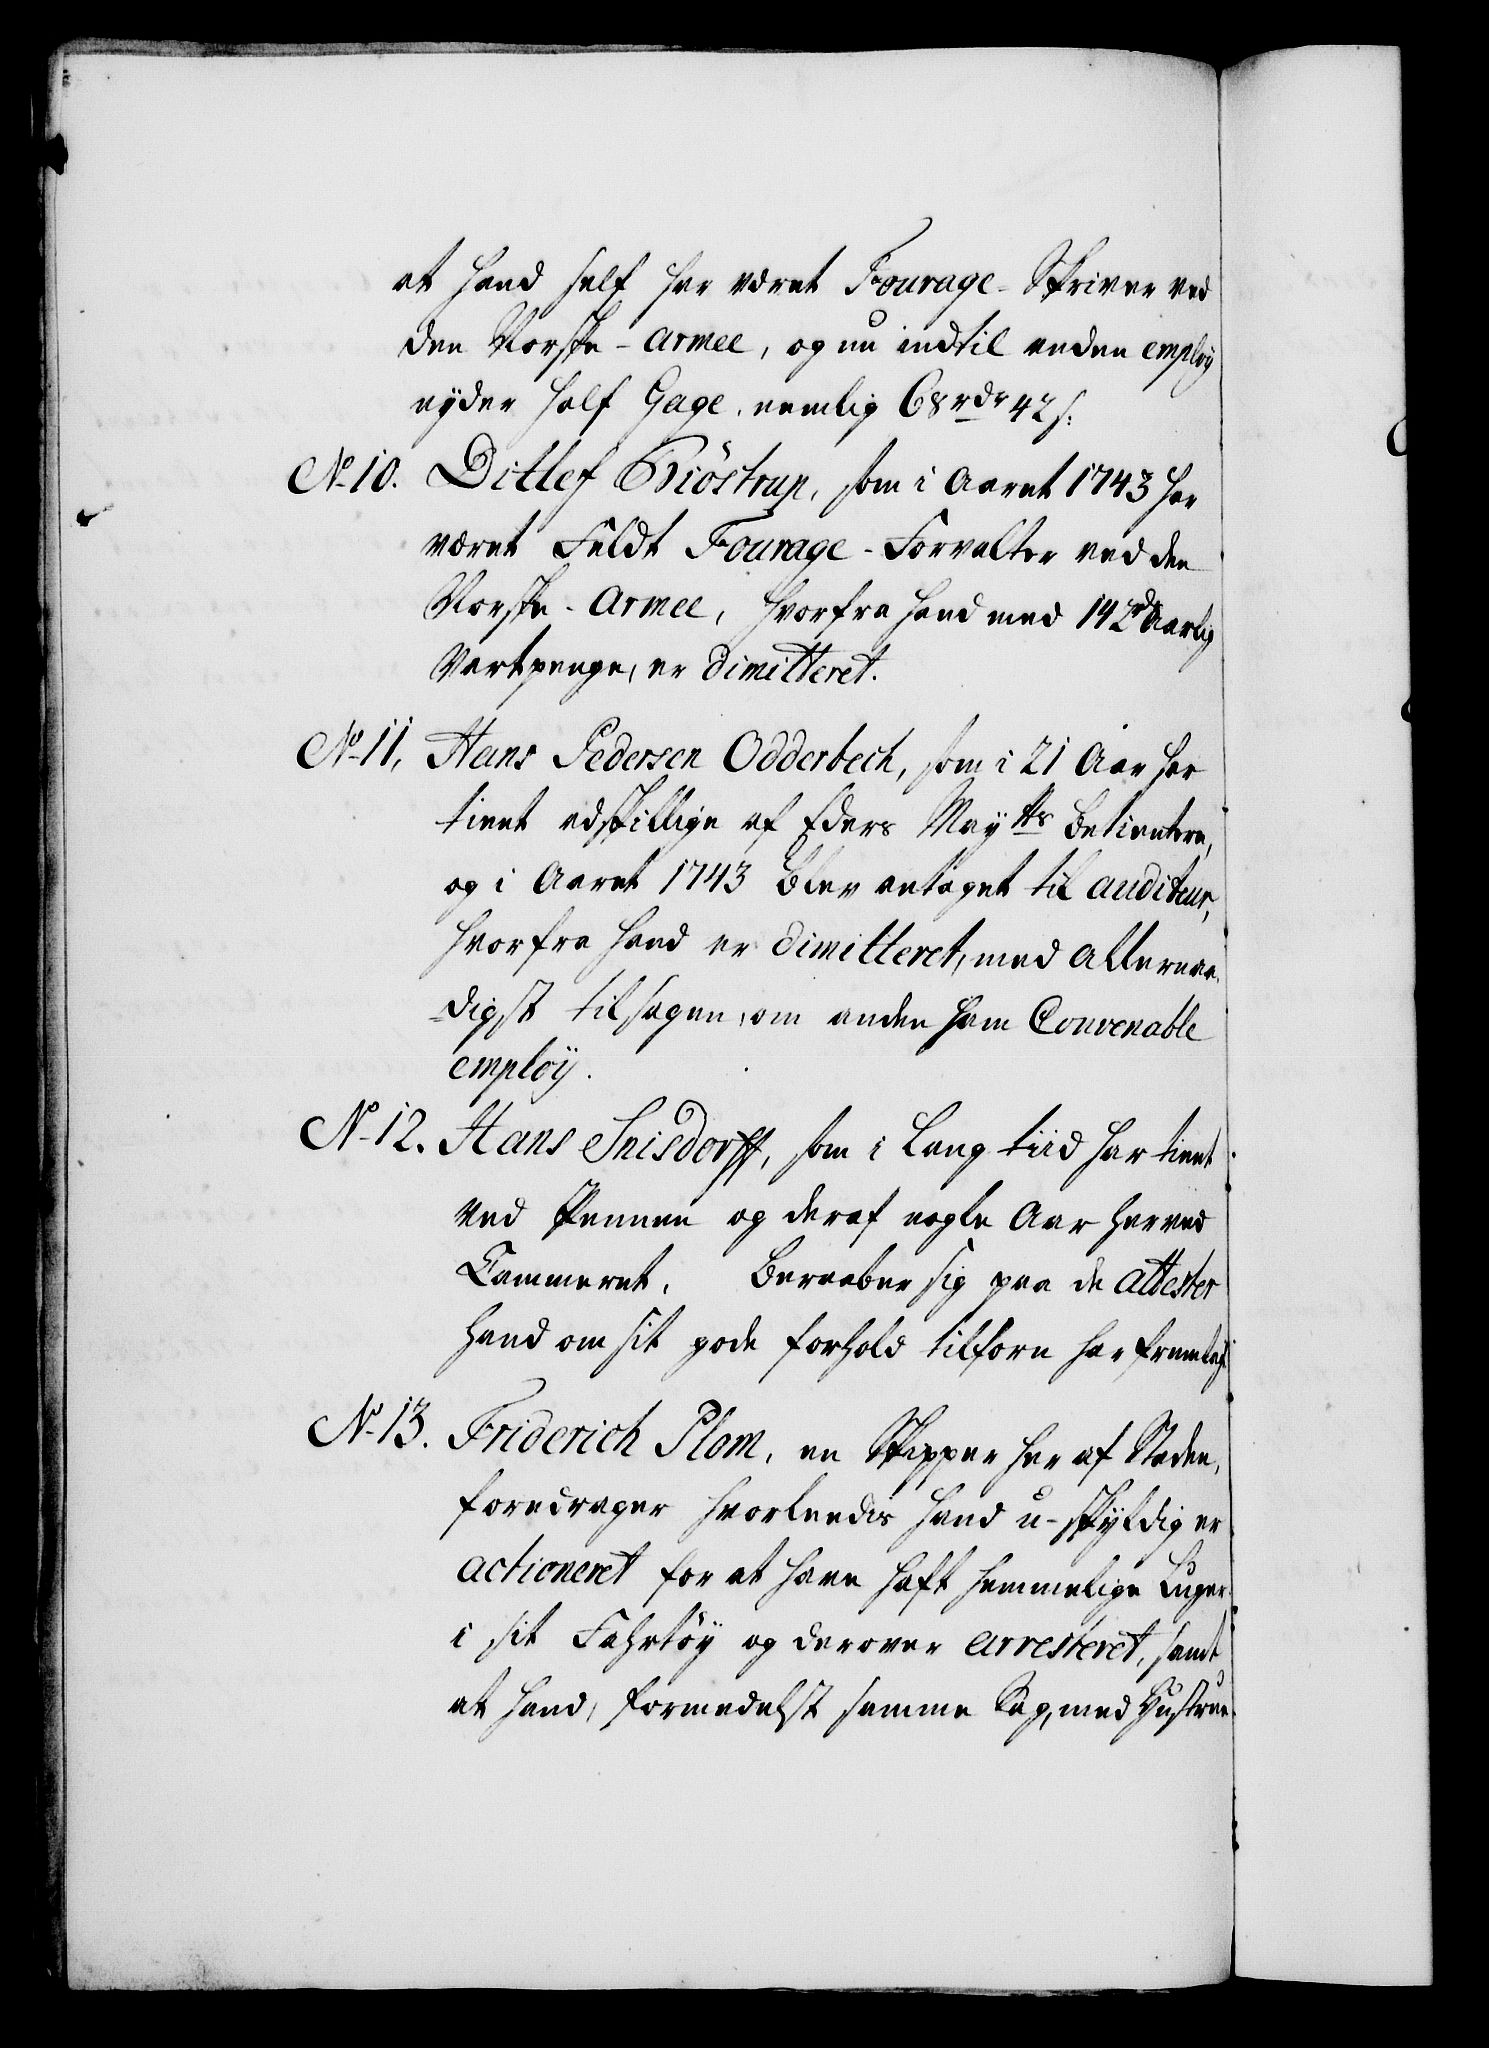 at hand self har været Fourage-Skriver ved
den Norske-Armee, og nu indtil anden employ
nyder half Gage, nemlig 68 rdr 42 s:
No 10. Ditlef Briöstrup, som i Aaret 1743 har
været Feldt Fourage-Forvalter ved den
Norske-Armee, hvorfra hand med 142 rdr Aarlig
Vartpenge, er dimitteret.
No 11, Hans Pedersen Odderbech, som i 21 Aar har
tient adskillige af Eders Mayts Betientere,
og i Aaret 1743 blev antaget til auditeur,
hvorfra hand er dimitteret, med Allernaa-
digst tilsagen, om anden ham Convenable
employ.
No 12. Hans Snisdorff, som i Lang tiid har tient
ved Pennen og deraf nogle Aar her ved
Cammeret. Beraaber sig paa de attester
hand om sit gode forhold tilforn har fremlagt
No 13. Friderich Plom, en Skipper her af Staden,
foredrager hvorleedis hand u-skyldig er
actioneret for at have haft hemmelige Luger
i sit Fahrtöy og derover arresteret, samt
at hand, formedelst samme Sag, med Hustrue